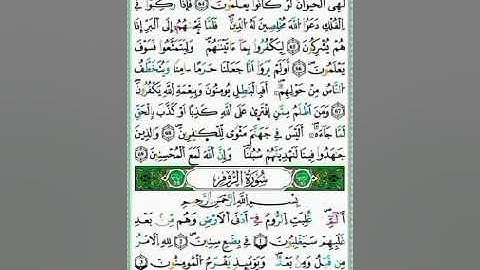 لَهِيَ الْحَيَوَانُ لَوْ كَانُوا يَعْلَمُونَ ﴿٦٤﴾ فَإِذَا رَكِبُوا فِي
الْفُلْكِ دَعَوُا اللَّهَ مُخْلِصِينَ لَهُ الدِّينَ فَلَمَّا نَجَّاهُمْ إِلَى الْبَرِّ إِذَا
هُمْ يُشْرِكُونَ ﴿٦٥﴾ لِيَكْفُرُوا بِمَا آتَيْنَاهُمْ وَلِيَتَمَتَّعُوا فَسَوْفَ
يَعْلَمُونَ ﴿٦٦﴾ أَوَلَمْ يَرَوْا أَنَّا جَعَلْنَا حَرَمًا آمِنًا وَيُتَخَطَّفُ
النَّاسُ مِنْ حَوْلِهِمْ أَفَبِالْبَاطِلِ يُؤْمِنُونَ وَبِنِعْمَةِ اللَّهِ يَكْفُرُونَ
﴿٦٧﴾ وَمَنْ أَظْلَمُ مِمَّنِ افْتَرَى عَلَى اللَّهِ كَذِبًا أَوْ كَذَّبَ بِالْحَقِّ
لَمَّا جَاءَهُ أَلَيْسَ فِي جَهَنَّمَ مَثْوًى لِلْكَافِرِينَ ﴿٦٨﴾ وَالَّذِينَ
جَاهَدُوا فِينَا لَنَهْدِيَنَّهُمْ سُبُلَنَا وَإِنَّ اللَّهَ لَمَعَ الْمُحْسِنِينَ ﴿٦٩﴾
سُورَةُ الرُّومِ
بِسْمِ اللَّهِ الرَّحْمَٰنِ الرَّحِيمِ
الم ﴿١﴾ غُلِبَتِ الرُّومُ ﴿٢﴾ فِي أَدْنَى الْأَرْضِ وَهُمْ مِنْ بَعْدِ
غَلَبِهِمْ سَيَغْلِبُونَ ﴿٣﴾ فِي بِضْعِ سِنِينَ لِلَّهِ الْأَمْرُ
مِنْ قَبْلُ وَمِنْ بَعْدُ وَيَوْمَئِذٍ يَفْرَحُ الْمُؤْمِنُونَ ﴿٤﴾